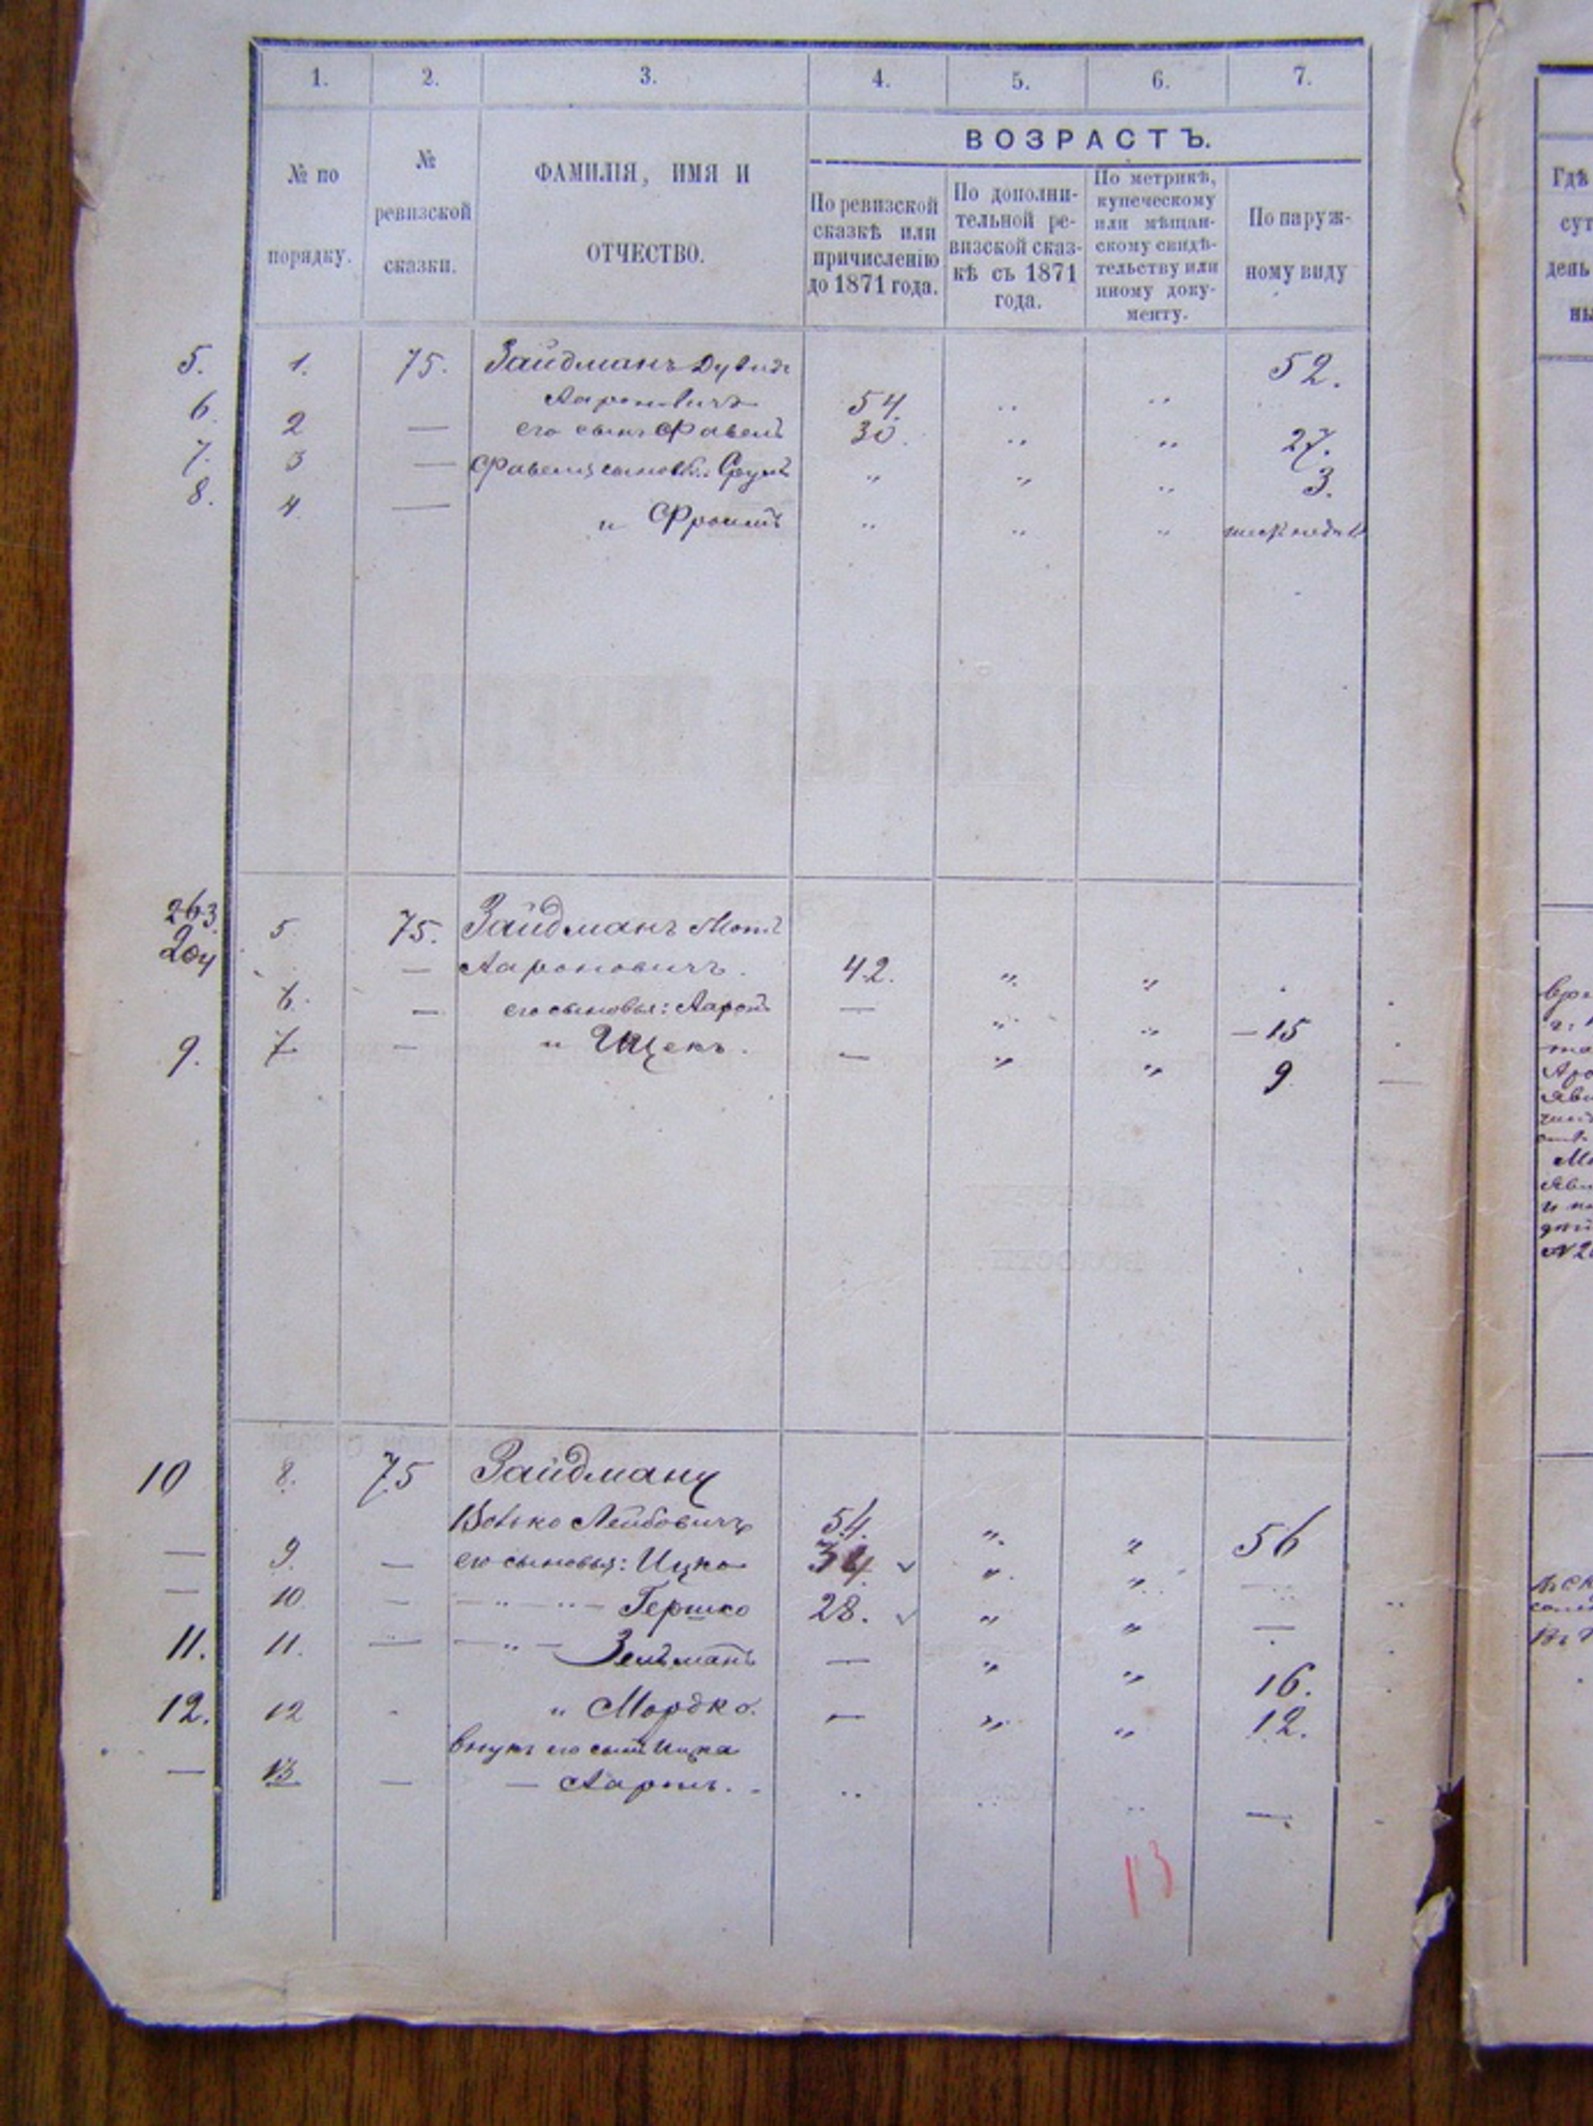 1. 2. 3. 4. 5. 6. 7.
№ по порядку.
№ ревизской сказки.
ФАМИЛІЯ, ИМЯ И ОТЧЕСТВО.
ВОЗРАСТЪ.
По ревизской сказкѣ или причисленію до 1871 года.
По дополнительной ревизской сказкѣ съ 1871 года.
По метрикѣ, купеческому или мѣщанскому свидѣтельству или иному документу.
По наружному виду
5. 1. 75. Зайдманъ Дувидъ 52.
Аароновичъ 54. " "
6. 2 — его сынъ Файвель 30. " " 27.
7. 3 — сыновья: Срулъ " " " 3.
8. 4 — и Фроимъ " " "
263
204
5 75. Зайдманъ
— Аароновичъ. 42. " "
6. — его сыновья: Ааронъ — " " — 15
9. 7 — и Ицекъ. — " " 9
10 8. 75 Зайдманъ
Волько Лейбовичъ 54. " " 56
— 9. — его сыновья: Ицко 34. " "
— 10. — — " — " — Гершко 28. " " —
11. 11. — — " — Зельманъ — " " 16.
12. 12 - " Мордко. — " " 12.
внукъ его сынъ Ицка
— 13 — — Ааронъ. " " " —
13
Гдѣ
сут
день